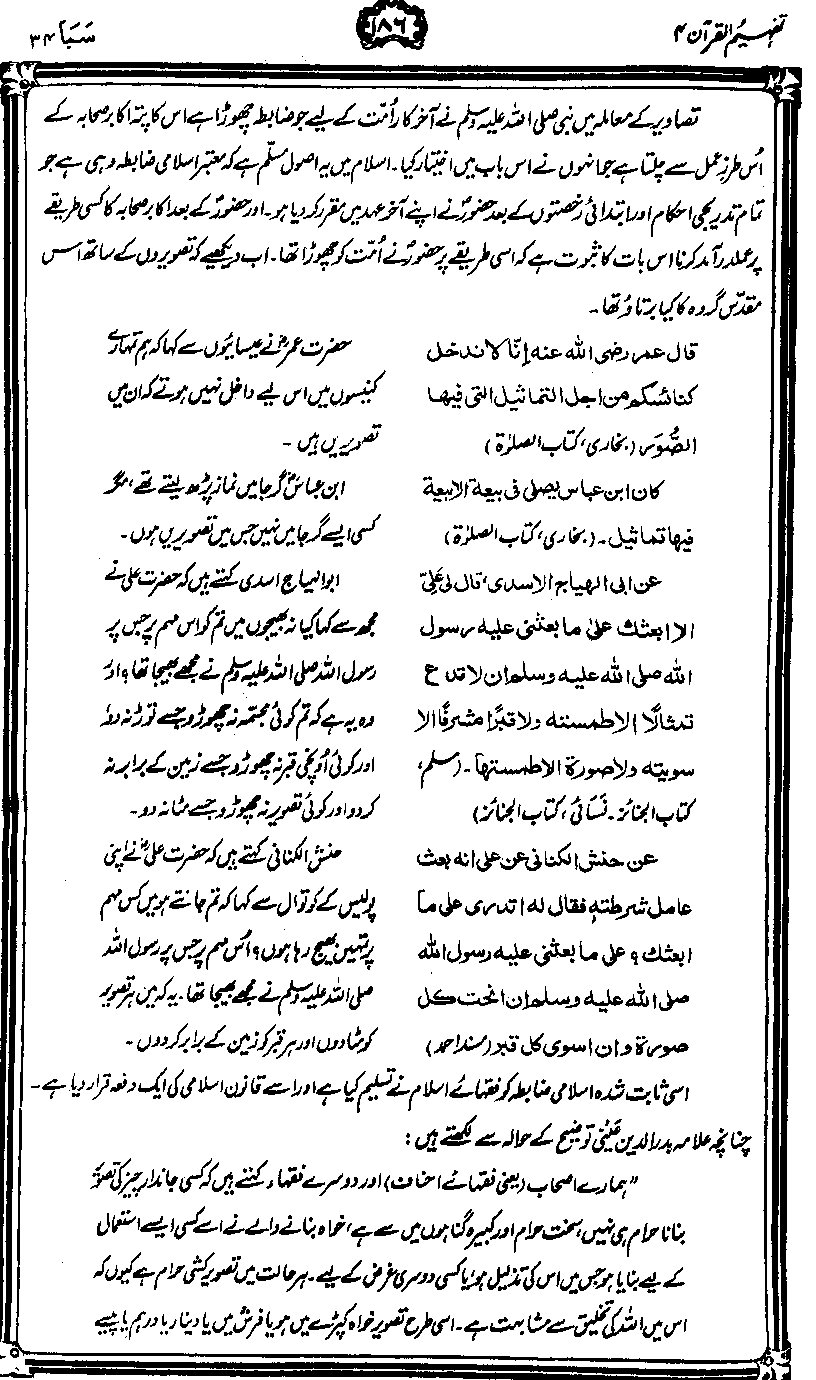 تفہیم القرآن ۴
۱۸۶
سَبَا ۳۴
تصاویر کے معاملہ میں نبی صلی اللہ علیہ وسلم نے آخر کار اُمّت کے لیے جو ضابطہ چھوڑا ہے اس کا پتہ اکابر صحابہ کے
اُس طرزِ عمل سے چلتا ہے جو انہوں نے اس باب میں اختیار کیا۔ اسلام میں یہ اصول مسلّم ہے کہ معتبر اسلامی ضابطہ وہی ہے جو
تمام تدریجی احکام اور ابتدائی رخصتوں کے بعد حضورؐ نے اپنے آخر عہد میں مقرر کر دیا ہو۔ اور حضورؐ کے بعد اکابر صحابہ کا کسی طریقے
پر عملدرآمد کرنا اس بات کا ثبوت ہے کہ اسی طریقے پر حضورؐ نے اُمّت کو چھوڑا تھا۔ اب دیکھیے کہ تصویروں کے ساتھ اس
مقدّس گروہ کا کیا برتاؤ تھا۔
قال عمر رضی اللہ عنہ إنّا لا ندخل
کنائسکم من اجل التماثیل التی فیھا
الصُّوَر (بخاری، کتاب الصلوٰۃ)
حضرت عمرؓ نے عیسائیوں سے کہا کہ ہم تمہارے
کنیسوں میں اس لیے داخل نہیں ہوتے کہ ان میں
تصویریں ہیں۔
کان ابن عباس یصلی فی بیعۃ الا بیعۃ
فیھا تماثیل۔ (بخاری، کتاب الصلوٰۃ)
ابن عباسؓ گرجا میں نماز پڑھ لیتے تھے، مگر
کسی ایسے گرجا میں نہیں جس میں تصویریں ہوں۔
عن ابی الھیاج الاسدی، قال لی علیّ
الا ابعثک علیٰ ما بعثنی علیہ رسول
اللہ صلی اللہ علیہ وسلم ان لا تدع
تمثالًا الا طمستہ ولا قبرًا مشرفًا الا
سویتہ ولا صورۃ الا طمستھا۔ (مسلم،
کتاب الجنائز۔ نسائی، کتاب الجنائز)
ابوالہیاج اسدی کہتے ہیں کہ حضرت علی نے
مجھ سے کہا کیا نہ بھیجوں میں تم کو اس مہم پر جس پر
رسول اللہ صلی اللہ علیہ وسلم نے مجھے بھیجا تھا؟ اور
وہ یہ ہے کہ تم کوئی مجسمہ نہ چھوڑو جسے توڑ نہ دو،
اور کوئی اُونچی قبر نہ چھوڑو جسے زمین کے برابر نہ
کر دو اور کوئی تصویر نہ چھوڑو جسے مٹا نہ دو۔
عن حنش الکنانی عن علی انہ بعث
عامل شرطتہٖ فقال لہ اتدری علی ما
ابعثک؟ علی ما بعثنی علیہ رسول اللہ
صلی اللہ علیہ وسلم ان انحت کل
صورۃ وان اسوی کل قبر (مسند احمد)
حنش الکنانی کہتے ہیں کہ حضرت علیؓ نے اپنی
پولیس کے کوتوال سے کہا کہ تم جانتے ہو میں کس مہم
پر تمہیں بھیج رہا ہوں؟ اُس مہم پر جس پر رسول اللہ
صلی اللہ علیہ وسلم نے مجھے بھیجا تھا۔ یہ کہ میں ہر تصویر
کو مٹا دوں اور ہر قبر کو زمین کے برابر کر دوں۔
اسی ثابت شدہ اسلامی ضابطہ کو فقہائے اسلام نے تسلیم کیا ہے اور اسے قانون اسلامی کی ایک دفعہ قرار دیا ہے۔
چنانچہ علامہ بدر الدین عَینی توضیح کے حوالہ سے لکھتے ہیں:
"ہمارے اصحاب (یعنی فقہائے احناف) اور دوسرے فقہاء کہتے ہیں کہ کسی جاندار چیز کی تصویر
بنانا حرام ہی نہیں، سخت حرام اور کبیرہ گناہوں میں سے ہے، خواہ بنانے والے نے اسے کسی ایسے استعمال
کے لیے بنایا ہو جس میں اس کی تذلیل ہو، یا کسی دوسری غرض کے لیے۔ ہر حالت میں تصویر کشی حرام ہے کیوں کہ
اس میں اللہ کی تخلیق سے مشابہت ہے۔ اسی طرح تصویر خواہ کپڑے میں ہو یا فرش میں یا دینار یا درہم یا پیسے